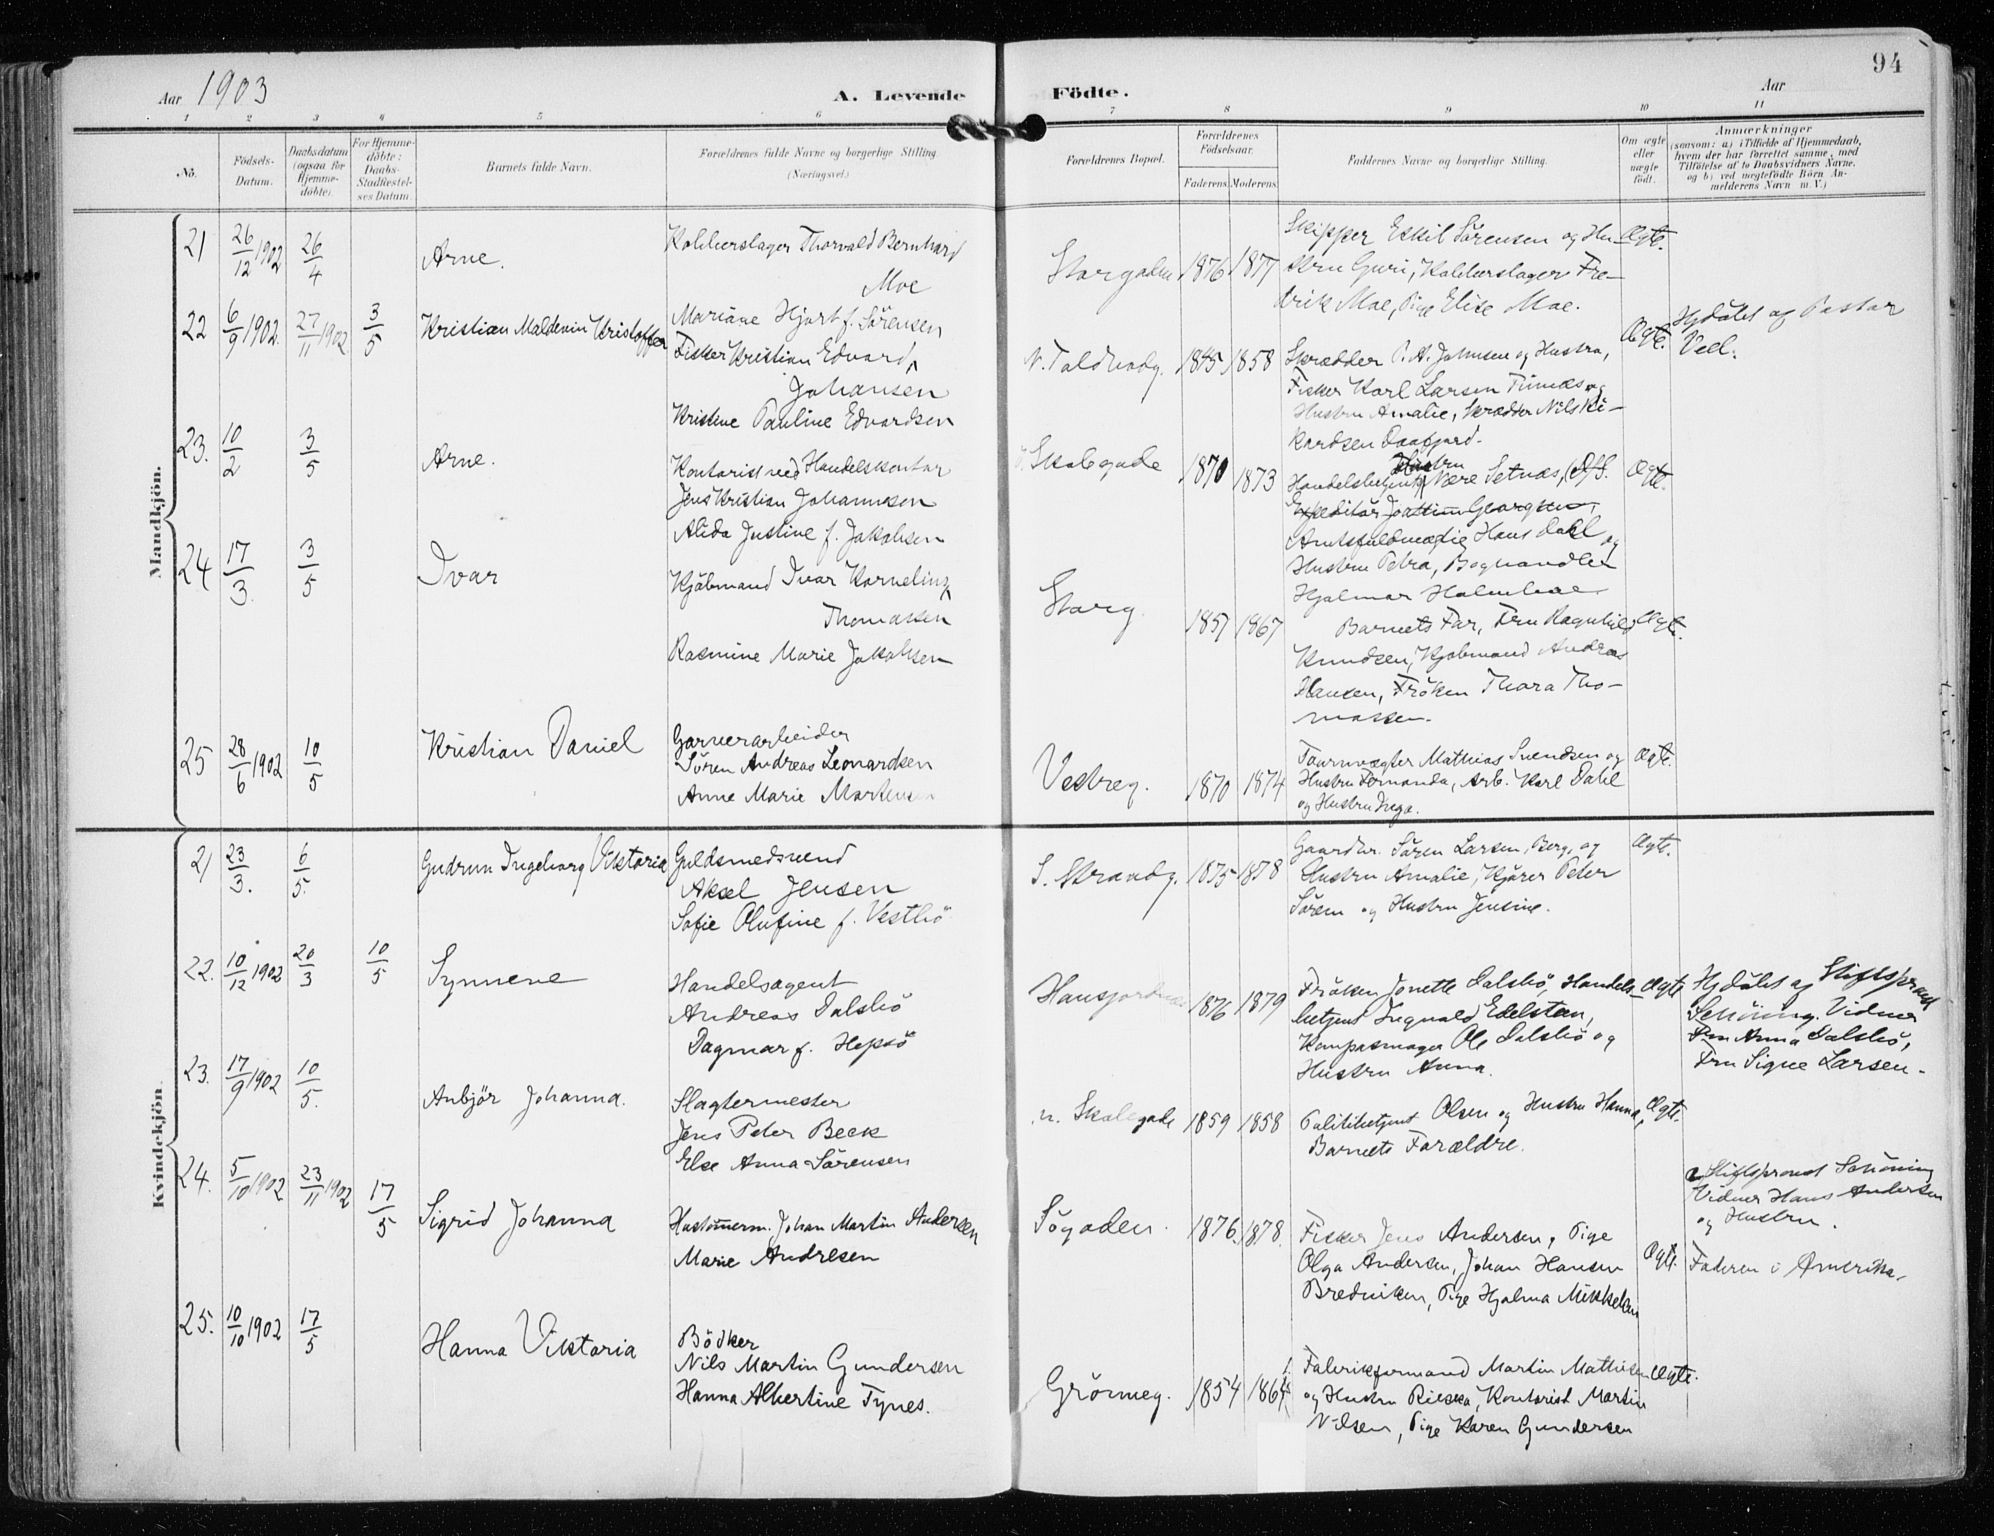 94
Aar 1903
A. Levende Födte.
Aar
1 2 3 4 5 6 7 8 9 10 11
No.
Födsels-
Datum.
Daabsdatum
(ogsaa for
Hjemme-
döbte).
For Hjemme-
döbte:
Daabs-
Stadfæstel-
ses Datum
Barnets fulde Navn.
Forældrenes fulde Navne og borgerlige Stilling
(Næringsvei)
Forældrenes Bopæl.
Forældrenes
Födselsaar.
Faderens Moderens
Faddernes Navne og borgerlige Stilling.
Om ægte
eller
uægte
födt.
Anmærkninger
(saasom: a) i Tilfælde af Hjemmedaab,
hvem der har forrettet samme, med
Tilföielse af to Daabsvidners Navne,
og b) ved uægtefödte Börn An-
melderens Navn m. V.)
Mandkjön.
21 26/12 1902 26/4 Arne.
Kobberslager Thorvald Bernhard
Moe
Mariane Hjort f. Sörensen
Storgaden 1876 1877
Skipper Eskil Sörensen og Hu-
stru Guri, Kobberslager Fre-
drik Moe, Pige Elise Moe.
Ægte.
22 6/9 1902. 27/11 1902 3/5 Kristian Kristoffer
Fisker Kristian Edvard
Johansen
Kristine Pauline Edvardsen
N. Toldbodg. 1845 1858
Skrædder P. A. Johnsen og Hustru,
Fisker Karl Larsen og
Hustru Amalie, Skrædder Nils Ri-
kardsen
Ægte.
Hjdöbt af Pastor
Vell.
23. 10/2 3/5 Arne.
Kontorist ved Handelskontor
Jens Kristian Johannesen
Alida Justine f. Jakobsen
Skolegade 1870 1873
Hustru
Handelsbetjent Nære Setnæs,
Expeditör Joakim Georgsen,
Amtsfuldmægtig Hans Dahl og
Hustru Petra, Boghandler
Hjalmar Holmboe
Ægte.
24 17/3. 3/5 Ivar
Kjöbmand Ivar Kornelius
Thomassen
Rasmine Marie Jakobsen
Storg. 1857 1867
Barnets Far, Fru Ragnhild
Knudsen, Kjöbmand Andreas
Hansen, Fröken Thora Tho-
massen.
Ægte.
25 28/6 1902 10/5 Kristian Daniel
Garverarbeider
Sören Andreas Leonardsen
Anne Marie Martensen
Vestreg. 1870 1874
Taarnvægter Mathias Svendsen og
Hustru Fernanda, Arb. Karl Dahl
og Hustru Inga.
Ægte.
Kvindekjön.
21 23/3. 6/5. Gudrun Ingeborg Viktoria
Guldsmedsvend
Aksel Jensen
Sofie Olufine f. Vestbö
S. Strandg. 1875 1878
Gaardbr. Sören Larsen, Berg, og
Hustru Amalie, Kjörer Peter
Sören og Hustru Jensine.
Ægte.
22. 10/12 1902 20/3 10/5 Synnene
Handelsagent
Andreas Dalsbö
Dagmar f. Hepsö
Hansjordnes 1876 1879
Fröken Jonette Dalsbö, Handels-
betjent Ingvald Edelsteen,
Kompasmager Ole Dalsbö og
Hustru Anna.
Ægte
Hjdöbt af Stiftsprovst
Schöning. Vidner
Fru Anna Dalsbö,
Fru Signe Larsen.
23. 17/9 1902 10/5. Anbjör Johanna.
Slagtermester
Jens Peter Beck
Else Anna Sörensen
n. Skolegade 1859 1858
Politibetjent Olsen og Hustru Hanna,
Barnets Forældre.
Ægte.
24. 5/10 1902 23/11 1902 17/5 Sigrid Johanna
Hustömerm. Johan Martin Andersen
Marie Andresen
Sögaden. 1876. 1878.
Fisker Jens Andersen, Pige
Olga Andersen, Johan Hansen
Bredviken, Pige Hjalma Mikkelsen
Ægte.
Stiftsprovst Schöning
Vidner Hans Andersen
og Hustru.
Faderen i Amerika.
25. 10/10 1902 17/5 Hanna Viktoria
Bödker
Nils Martin Gundersen
Hanna Albertine Tynes.
Grönneg. 1854 1864
Fabrikformand Martin Mathisen
og Hustru Rikka, Kontorist Martin
Nilsen, Pige Karen Gundersen
Ægte.